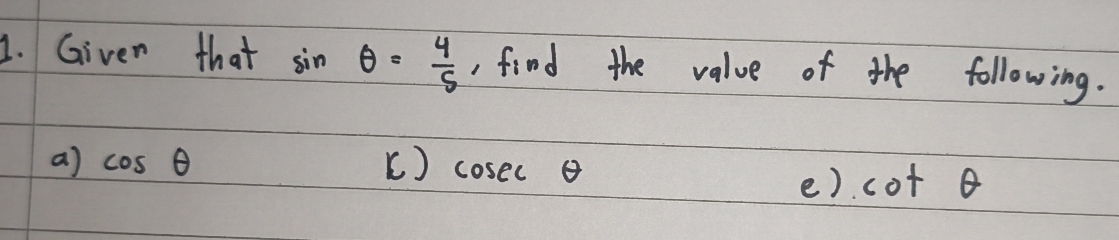 1. Given that sin θ = 4/5, find the value of the following.
a) cos θ c) cosec θ e) cot θ